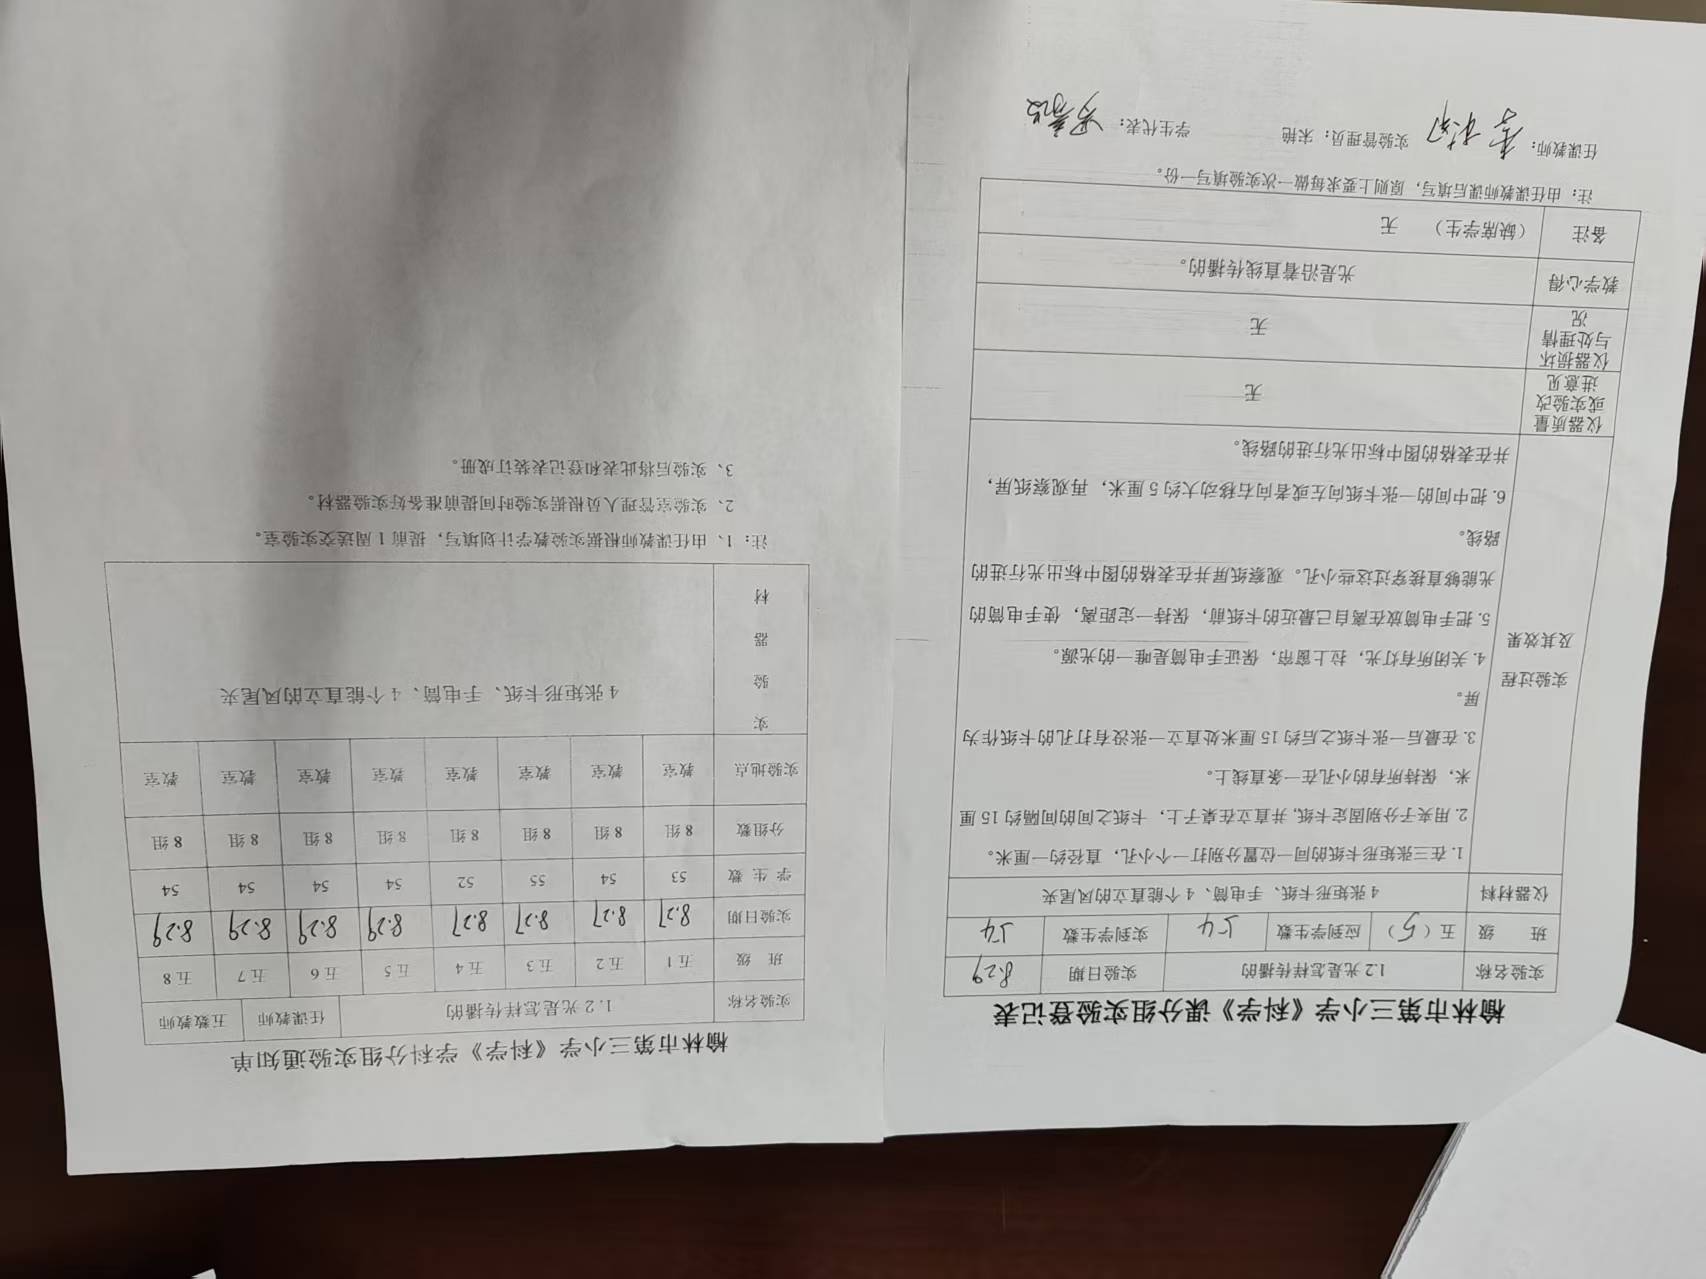 榆林市第三小学《科学》课分组实验登记表
实验名称 1.2光是怎样传播的 实验日期 8.29
班 级 五（5） 应到学生数 54 实到学生数 54
仪器材料 4张矩形卡纸、手电筒、4个能直立的凤尾夹
实验过程
及其效果
1. 在三张矩形卡纸的同一位置分别打一个小孔，直径约一厘米。
2. 用夹子分别固定卡纸, 并直立在桌子上，卡纸之间的间隔约15厘
米，保持所有的小孔在一条直线上。
3. 在最后一张卡纸之后约15厘米处直立一张没有打孔的卡纸作为
屏。
4. 关闭所有灯光，拉上窗帘，保证手电筒是唯一的光源。
5. 把手电筒放在离自己最近的卡纸前，保持一定距离，使手电筒的
光能够直接穿过这些小孔。观察纸屏并在表格的图中标出光行进的
路线。
6. 把中间的一张卡纸向左或者向右移动大约5厘米，再观察纸屏，
并在表格的图中标出光行进的路线。
仪器质量
或实验改
进意见
无
仪器损坏
与处理情
况
无
教学心得 光是沿着直线传播的。
备注 （缺席学生） 无
注：由任课教师课后填写，原则上要求每做一次实验填写一份。
任课教师： 实验管理员：宋艳 学生代表：
榆林市第三小学《科学》学科分组实验通知单
实验名称 1.2光是怎样传播的 任课教师 五数教师
班 级 五1 五2 五3 五4 五5 五6 五7 五8
实验日期 8.27 8.27 8.27 8.27 8.29 8.29 8.29 8.29
学 生 数 53 54 55 52 54 54 54 54
分组数 8组 8组 8组 8组 8组 8组 8组 8组
实验地点 教室 教室 教室 教室 教室 教室 教室 教室
实
验
器
材
4张矩形卡纸、手电筒、4个能直立的凤尾夹
注：1、由任课教师根据实验教学计划填写，提前1周送交实验室。
2、实验室管理人员根据实验时间提前准备好实验器材。
3、实验后将此表和登记表装订成册。